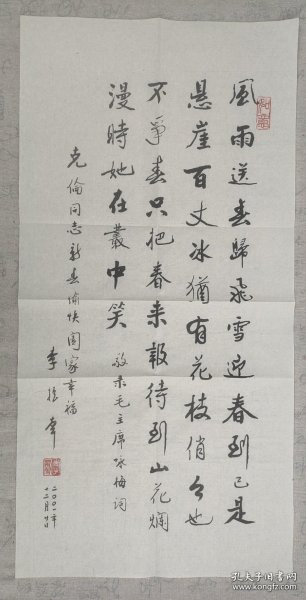 風雨送春歸飛雪迎春到已是
懸崖百丈冰猶有花枝俏俏也
不爭春只把春来報待到山花爛
漫時她在叢中笑 敬录毛主席咏梅词
克倫同志新春愉快闔家幸福
李
二〇〇一年
十二月廿日
孔夫子旧书网